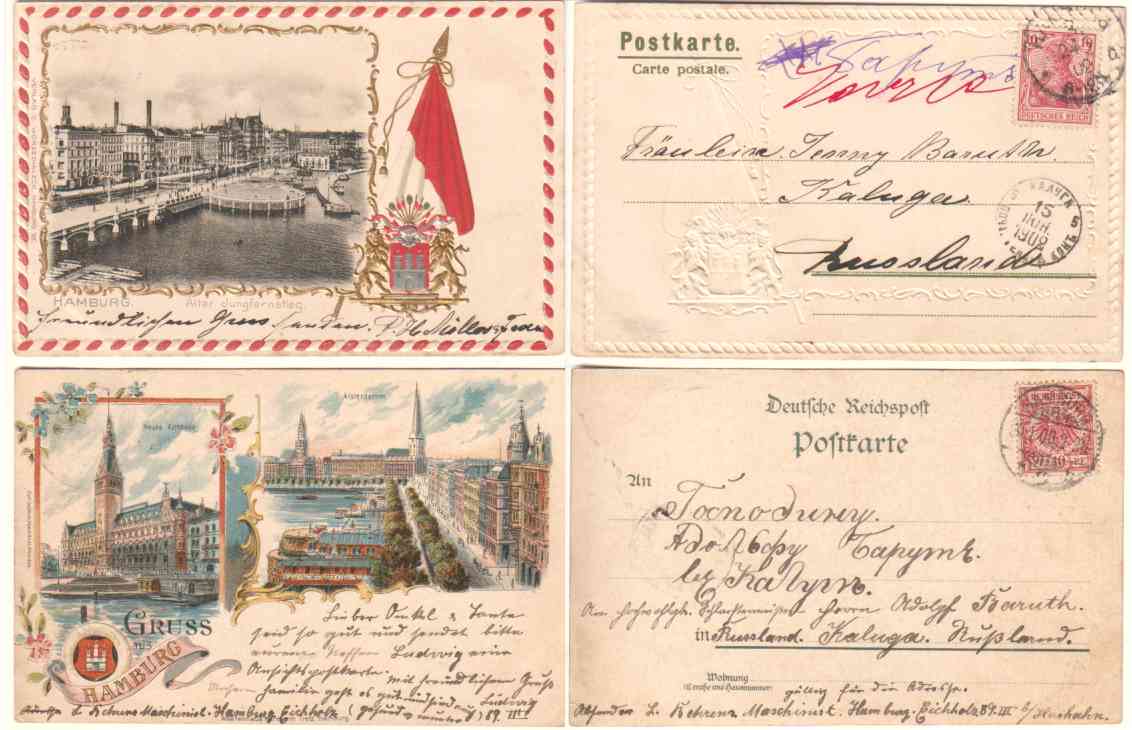 HAMBURG. Alter Jungfernstieg.
freundlichen Gruss senden.
Postkarte.
Carte postale.
DEUTSCHES REICH
Fräulein Jenny Baruth.
Kaluga.
КАЛУГА
15
1902
Russland
Neues Rathhaus
Alsterdamm
GRUSS
aus
HAMBURG
Lieber Onkel & Tante
seid so gut und sendet bitte
eurem Neffen Ludwig eine
Ansichtspostkarte. Mit freundlichem Gruß
Familie geht es gut
Ludwig
Maschinist. Hamburg. Eichholz 89. III
Deutsche Reichspost
Postkarte
An
Господину.
Адольфу Барутъ.
въ Калугъ.
Herrn Adolf Baruth.
in Russland. Kaluga. Rußland.
Wohnung
(Straße und Hausnummer)
gültig für die Adresse.
Absender L. Behrens Maschinist. Hamburg. Eichholz 89. III